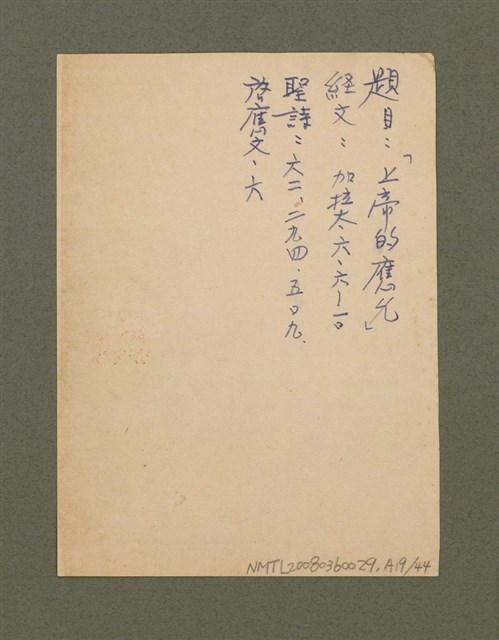 題目：「上帝的應允」
経文：加拉太、六、六～一〇
聖詩：六二、二九四、五〇九、
啓應文、六
NMTL20080360029,A19/44